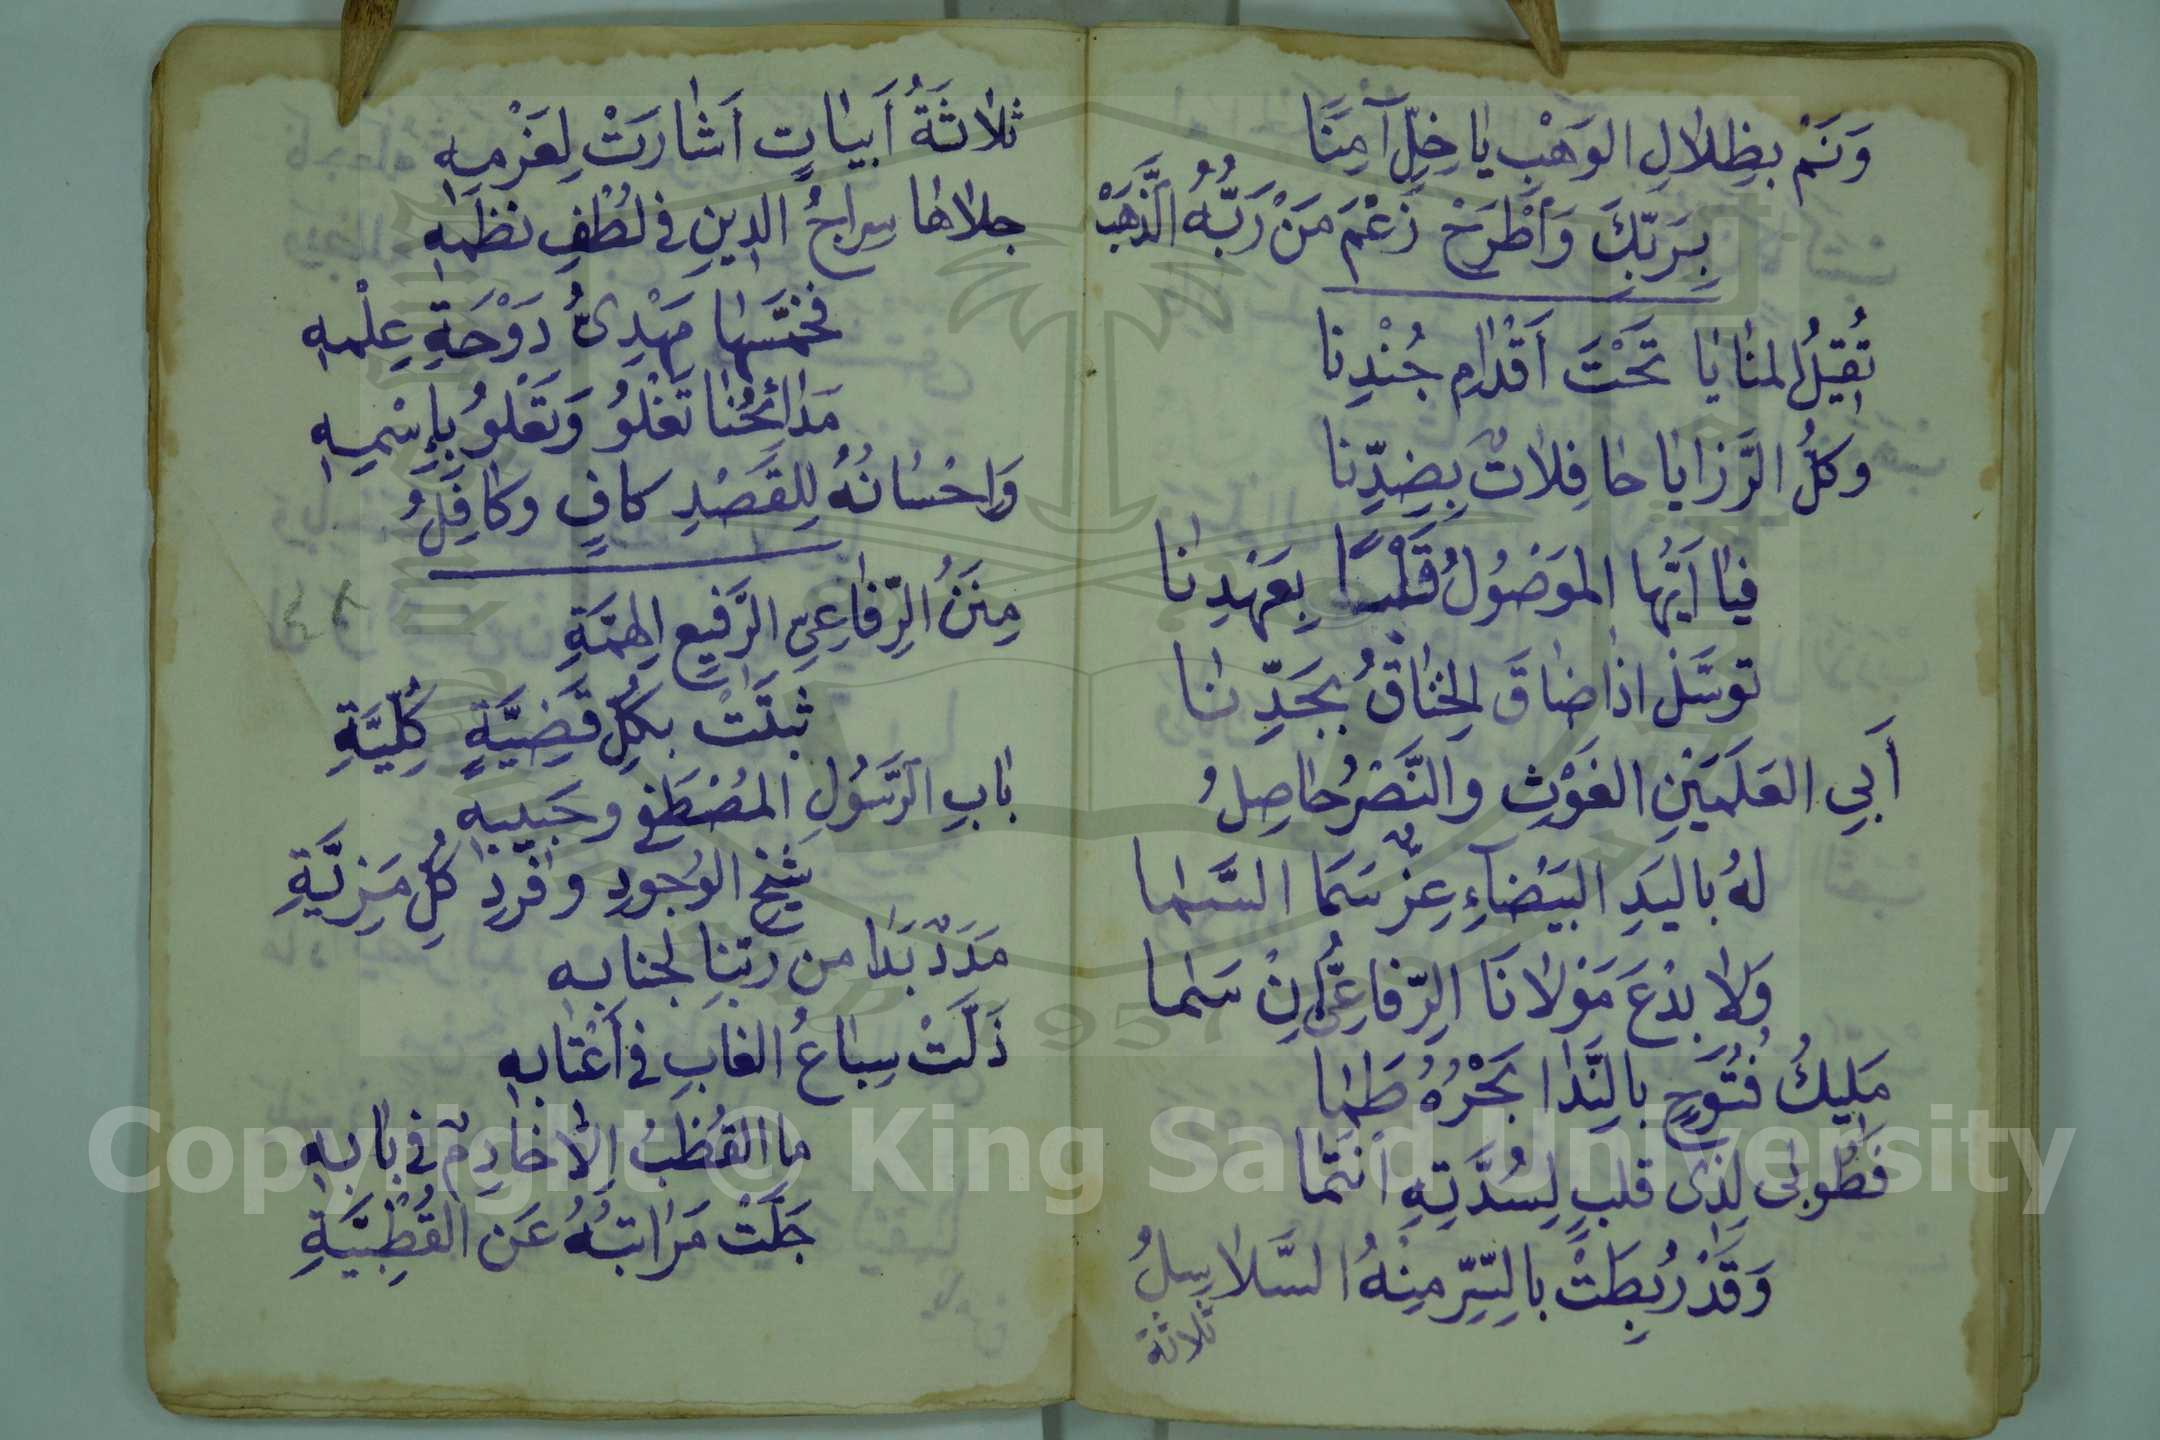 وَنَمْ بِظِلَالِ الوَهْبِ يَا خِلِّ آمِنًا
بِرَبِّكَ وَاطْرَحْ زَعْمَ مَنْ رَبُّهُ الذَّهَبْ
تُقِيلُ المَنَايَا تَحْتَ أَقْدَامِ جُنْدِنَا
وَكُلُّ الرَّزَايَا حَافِلَاتٌ بِضِدِّنَا
فَيَا أَيُّهَا المَوْصُولُ قَلْبًا بِعَهْدِنَا
تَوَسَّلْ اذَا ضَاقَ الخِنَاقُ بِجَدِّنَا
أَبِي العَلَمَيْنِ الغَوْثِ وَالنَّصْرُ حَاصِلُ
لَهُ بِاليَدِ البَيْضَاءِ عِزٌّ سَمَا السَّمَا
وَلَا بِدْعَ مَوْلَانَا الرِّفَاعِيُّ إِنْ سَمَا
مَلِيكُ فُتُوحٍ بِالنَّدَا بَحْرُهُ طَمَا
فَطُوبَى لِذِي قَلْبٍ لِسُدَّتِهِ انْتَمَا
وَقَدْ رُبِطَتْ بِالسِّرِّ مِنْهُ السَّلَاسِلُ
ثلاثة
ثَلَاثَةُ أَبْيَاتٍ أَشَارَتْ لِعَزْمِهِ
جَلَاهَا سِرَاجُ الدِينِ فِي لُطْفِ نَظْمِهِ
فَخَمَّسَهَا مَهْدِيُّ دَوْحَةِ عِلْمِهِ
مَدَائِحُنَا تَغْلُو وَتَعْلُو بِإِسْمِهِ
وَاِحْسَانُهُ لِلقَصْدِ كَافٍ وَكَافِلُ
مِنَنُ الرِّفَاعِيِّ الرَّفِيعِ الهِمَّةِ
ثَبَتَتْ بِكُلِّ قَضِيَّةٍ كُلِّيَّةِ
بَابِ الرَّسُولِ المُصْطَفَى وَحَبِيبِهِ
شَيْخِ الوُجُودِ وَفَرْدِ كُلِّ مَزِيَّةِ
مَدَدٌ بَدَا مِن رَبِّنَا لِجَنَابِهِ
ذَلَّتْ سِبَاعُ الغَابِ فِي أَعْتَابِهِ
مَا القُطْبُ اِلَّا خَادِمٌ فِي بَابِهِ
جَلَّتْ مَرَاتِبُهُ عَنِ القُطْبِيَّةِ
Copyright © King Saud University
1957